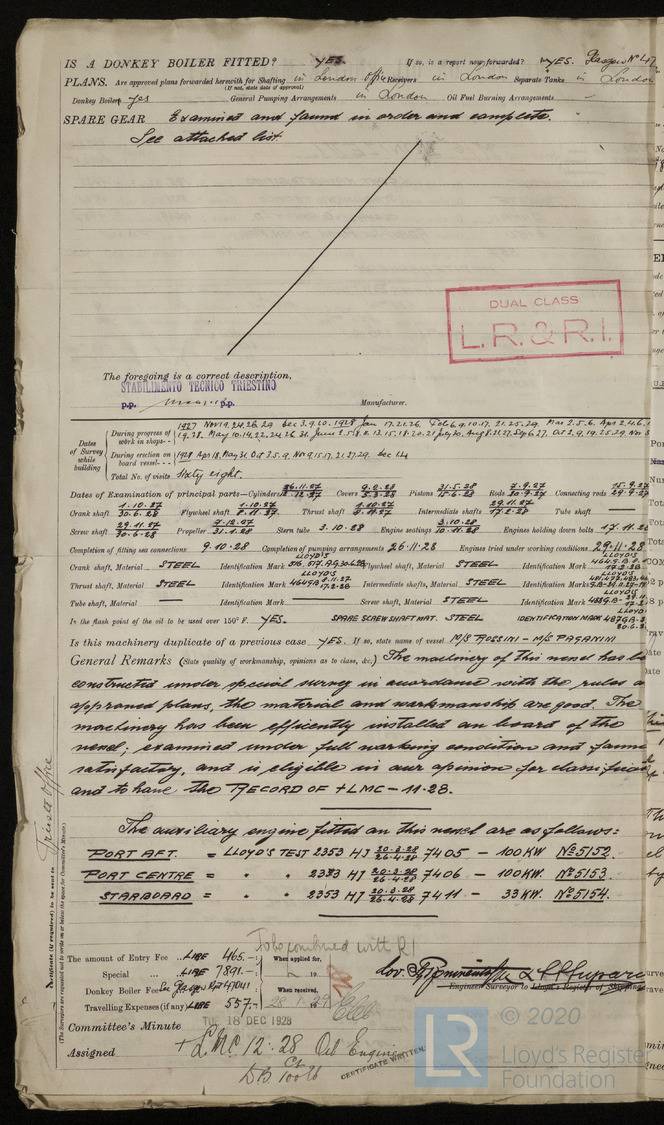 IS A DONKEY BOILER FITTED? YES. If so, is a report now forwarded? YES. Glasgow No 47
PLANS. Are approved plans forwarded herewith for Shafting in London Office Receivers in London Separate Tanks in London
(If not, state date of approval)
Donkey Boilers yes General Pumping Arrangements in London Oil Fuel Burning Arrangements -
SPARE GEAR Examined and found in order and complete.
See attached list.
DUAL CLASS
L.R. & R.I.
The foregoing is a correct description,
STABILIMENTO TECNICO TRIESTINO
p.p. p.p. Manufacturer.
Dates of Survey while building
During progress of work in shops - - 1927 Nov 19.24.26.29 Dec 3.9.10. 1928 Jan 17.21.26 Feb 6.9.10.17.21.25.29. Mar 2.5.6. Apr 2.4.6.
19.28. May 10.14.22.24.26.31. June 2.5.8.
During erection on board vessel - - - 1928 Apr 18. May 31. Oct 3.5.9. Nov 9.15.17.21.27.29. Dec 1.4
Total No. of visits Sixty eight.
Dates of Examination of principal parts—Cylinders 26.11.27 Covers 5.3.28 Pistons 31.5.28 15.6.28 Rods 7.9.27 30.9.27 Connecting rods 15.9.27 29.9.27
Crank shaft 1.10.27 30.6.28 Flywheel shaft 1.10.27 8.11.27 Thrust shaft 1.10.27 8.11.27 Intermediate shafts 29.11.27 17.2.28 Tube shaft —
Screw shaft 29.11.27 30.6.28 Propeller 7.12.27 31.1.28 Stern tube 3.10.28 Engine seatings 3.10.28 10.11.28 Engines holding down bolts 17.11.28
Completion of fitting sea connections 9.10.28 Completion of pumping arrangements 26.11.28 Engines tried under working conditions 29.11.28
Crank shaft, Material STEEL Identification Mark LLOYD'S Flywheel shaft, Material STEEL Identification Mark LLOYD'S 4649.B
Thrust shaft, Material STEEL Identification Mark LLOYD'S 4649B 8.11.27 17.2.28 Intermediate shafts, Material STEEL Identification Marks LLOYD'S
Tube shaft, Material — Identification Mark — Screw shaft, Material STEEL Identification Mark LLOYD'S
Is the flash point of the oil to be used over 150° F. YES. SPARE SCREW SHAFT MAT. STEEL IDENTIFICATION MARK LLOYD'S
Is this machinery duplicate of a previous case YES. If so, state name of vessel M/S ROSSINI - M/S PAGANINI
General Remarks (State quality of workmanship, opinions as to class, &c.) The machinery of this vessel has be
constructed under special survey in accordance with the rules a
approved plans, the material and workmanship are good. The
machinery has been efficiently installed on board of the
vessel; examined under full working condition and found
satisfactory, and is eligible in our opinion for classificat
and to have the RECORD OF +LMC - 11-28.
The auxiliary engine fitted on this vessel are as follows:
PORT AFT. = LLOYD'S TEST 2353 HJ 20.3.28 26.4.28 7405 - 100 KW No 5152
PORT CENTRE = " " 2353 HJ 20.3.28 26.4.28 7406 - 100 KW. No 5153
STARBOARD = " " 2353 HJ 20.3.28 26.4.28 7411 - 33 KW. No 5154.
Trieste Office
Certificate (if required) to be sent to
(The Surveyors are requested not to write on or below the space for Committee's Minute.)
To be combined with R1
The amount of Entry Fee .. LIRE 465.-: When applied for,
Special ... LIRE 7891.-: 19
Donkey Boiler Fee See Glasgow Rpt 47041 When received,
Travelling Expenses (if any) LIRE 557.-: 28.1.29
Engineer Surveyor to Lloyd's Register of Shipping
Committee's Minute TUE 18 DEC 1928
Assigned + LMC 12.28 Oil Engine
CERTIFICATE WRITTEN.
DB 100 lb
LR © 2020
Lloyd's Registe
Foundation